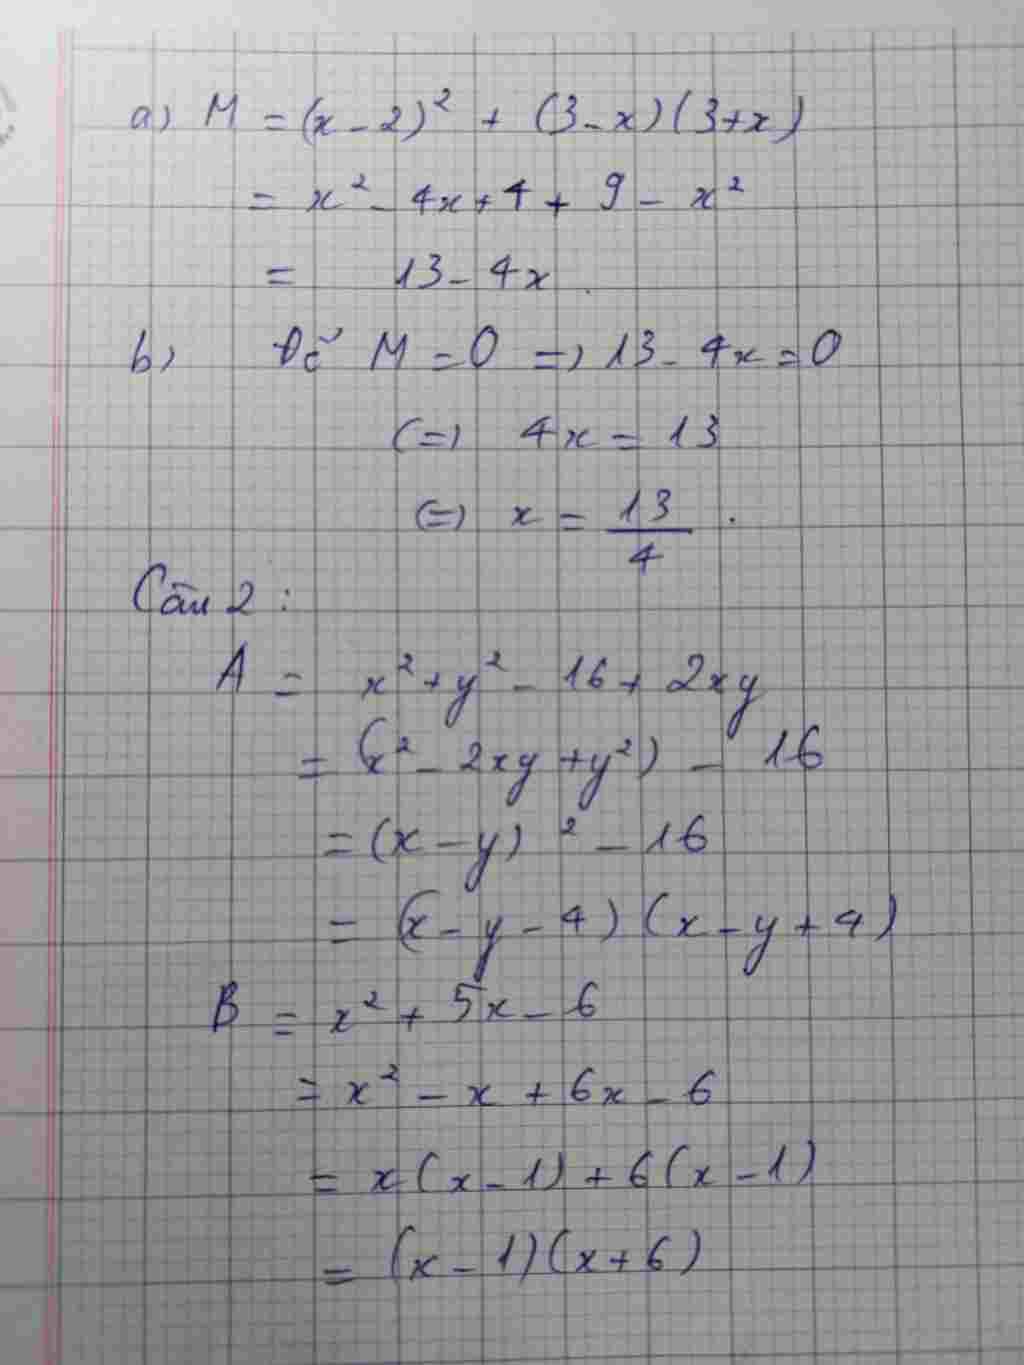 a) M = (x - 2)² + (3 - x)(3 + x)
= x² - 4x + 4 + 9 - x²
= 13 - 4x.
b) Để M = 0 => 13 - 4x = 0
(=) 4x = 13
(=) x = 13/4.
Câu 2:
A = x² + y² - 16 + 2xy
= (x² - 2xy + y²) - 16
= (x - y)² - 16
= (x - y - 4)(x - y + 4)
B = x² + 5x - 6
= x² - x + 6x - 6
= x(x - 1) + 6(x - 1)
= (x - 1)(x + 6)